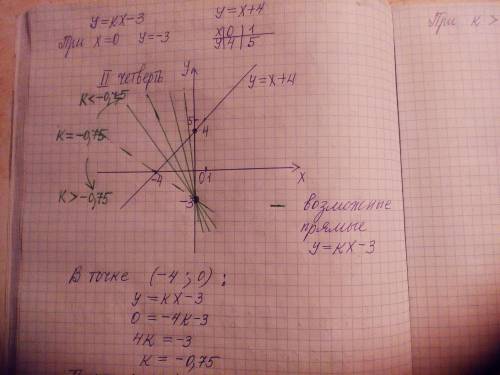 y=кx-3
y=x+4
При x=0 y=-3
x 0 1
y 4 5
При к >
II четверть
y
к<-0,75
y=x+4
5
4
к=-0,75
-4
0 1
x
к>-0,75
-3
— возможные
прямые
y=кx-3
В точке (-4;0):
y=кx-3
0=-4к-3
4к=-3
к=-0,75